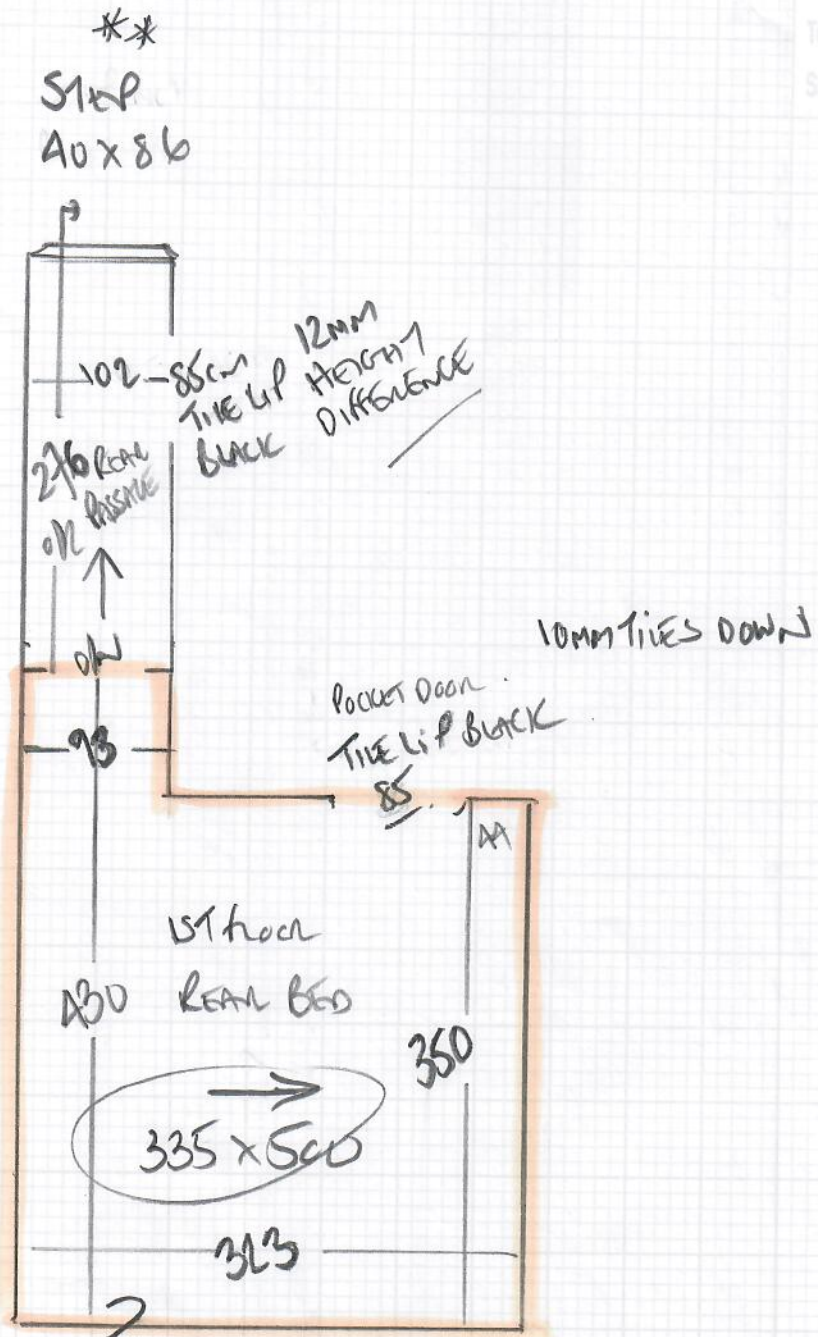 **
STEP
40 X 86
102
85CM
TILE LIP
BLACK
12MM
HEIGHT
DIFFERENCE
276
REAR
PASSAGE
10MM TILES DOWN
POCKET DOOR
TILE LIP BLACK
85
93
1ST FLOOR
REAR BED
430
350
335 X 500
323